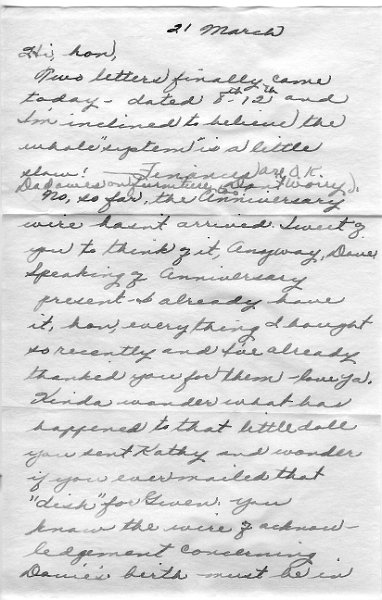 21 March
Hi, hon,
Two letters finally came
today - dated 8th-12th and
I'm inclined to believe the
whole "system" is a little
slow! — Finances are O.K.
on furniture so don't worry).
No, so far, the Anniversary
wire hasn't arrived. Sweet of
you to think of it, Anyway, Dave
Speaking of Anniversary
present - I already have
it, hon, everything I bought
so recently and I've already
thanked you for them - love ya.
Kinda wonder what has
happened to that little doll
you sent Kathy and wonder
if you ever mailed that
"disk" for Gwen. You
know the wire of acknow-
ledgement concerning
Davie's birth must be in